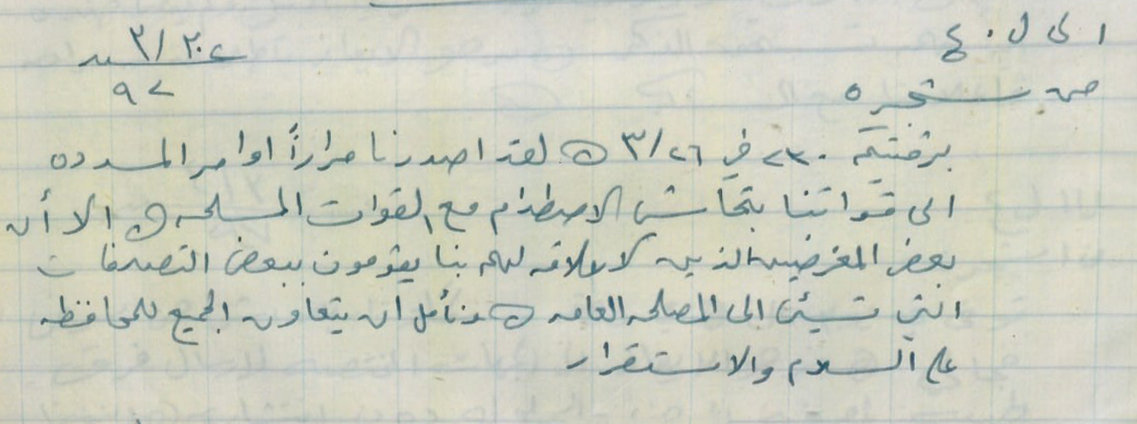 الى ل. ٤
٢٠٢ / ٣١
٩٢
من سنجره
برقيتكم ٢٣٠ في ٢٦/٣ لقد اصدرنا مراراً اوامر المسدده
الى قواتنا بتحاشي الاصطدام مع القوات المسلحه الا أن
بعض المغرضين الذين لا علاقه لهم بنا يقومون ببعض التصرفات
التي تسيئ الى المصلحه العامه ونأمل ان يتعاون الجميع للمحافظه
على السلام والاستقرار